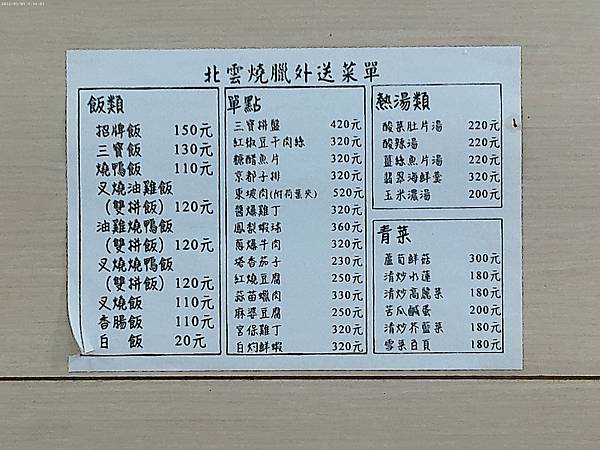 北雲燒臘外送菜單
飯類
招牌飯 150元
三寶飯 130元
燒鴨飯 110元
叉燒油雞飯
(雙拼飯) 120元
油雞燒鴨飯
(雙拼飯) 120元
叉燒燒鴨飯
(雙拼飯) 120元
叉燒飯 110元
香腸飯 110元
白 飯 20元
單點
三寶拼盤 420元
紅椒豆干肉絲 320元
糖醋魚片 320元
京都子排 320元
東坡肉(附荷葉夾) 520元
醬爆雞丁 320元
鳳梨蝦球 360元
蔥爆牛肉 320元
塔香茄子 230元
紅燒豆腐 250元
蒜苗臘肉 330元
麻婆豆腐 250元
宮保雞丁 320元
白灼鮮蝦 320元
熱湯類
酸菜肚片湯 220元
酸辣湯 220元
薑絲魚片湯 220元
翡翠海鮮羹 320元
玉米濃湯 200元
青菜
蘆筍鮮菇 300元
清炒水蓮 180元
清炒高麗菜 180元
苦瓜鹹蛋 200元
清炒芥藍菜 180元
雪菜百頁 180元